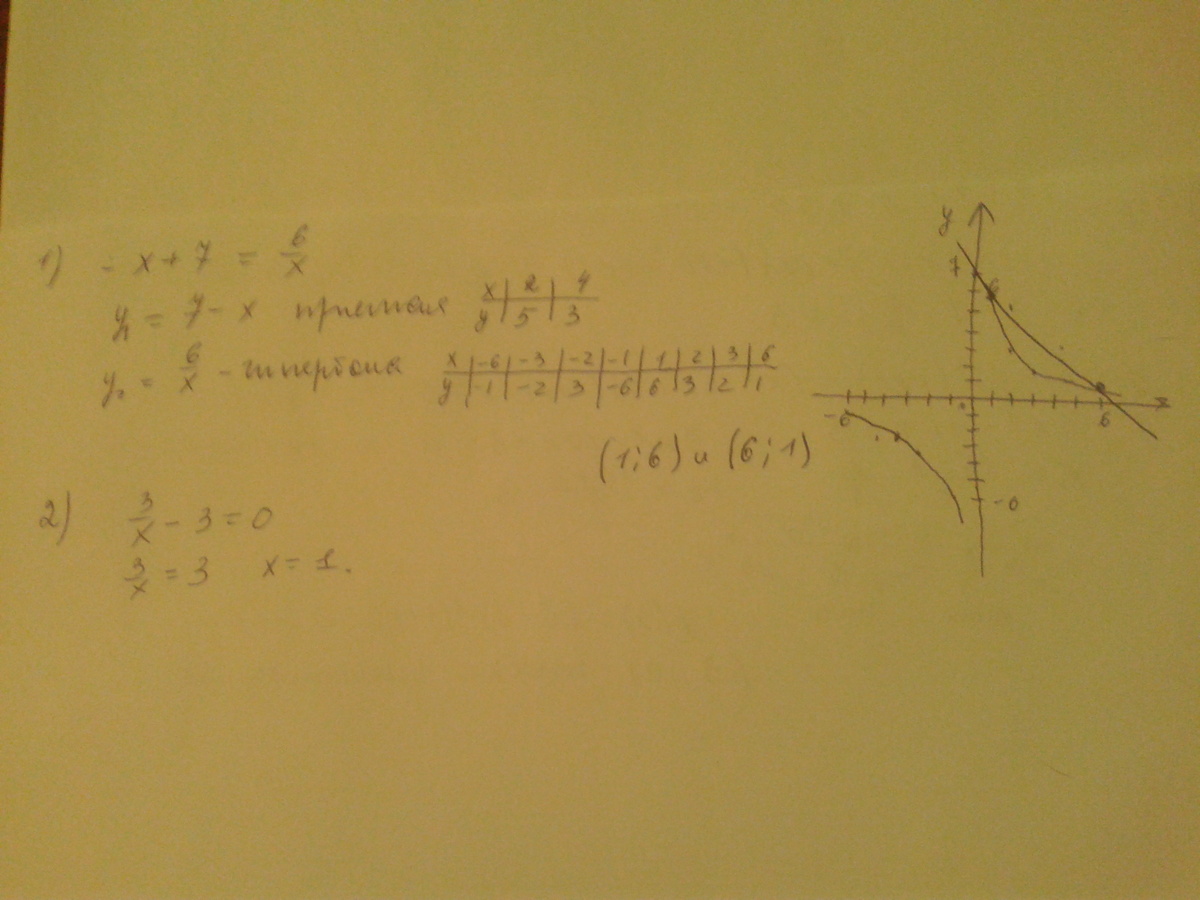 1) - x + 7 = 6/x
y₁ = 7 - x прямая x | 2 | 4
y | 5 | 3
y₂ = 6/x - гипербола x | -6 | -3 | -2 | -1 | 1 | 2 | 3 | 6
y | -1 | -2 | 3 | -6 | 6 | 3 | 2 | 1
(1; 6) и (6; 1)
2) 3/x - 3 = 0
3/x = 3 x = 1.
y
7
6
-6
6
x